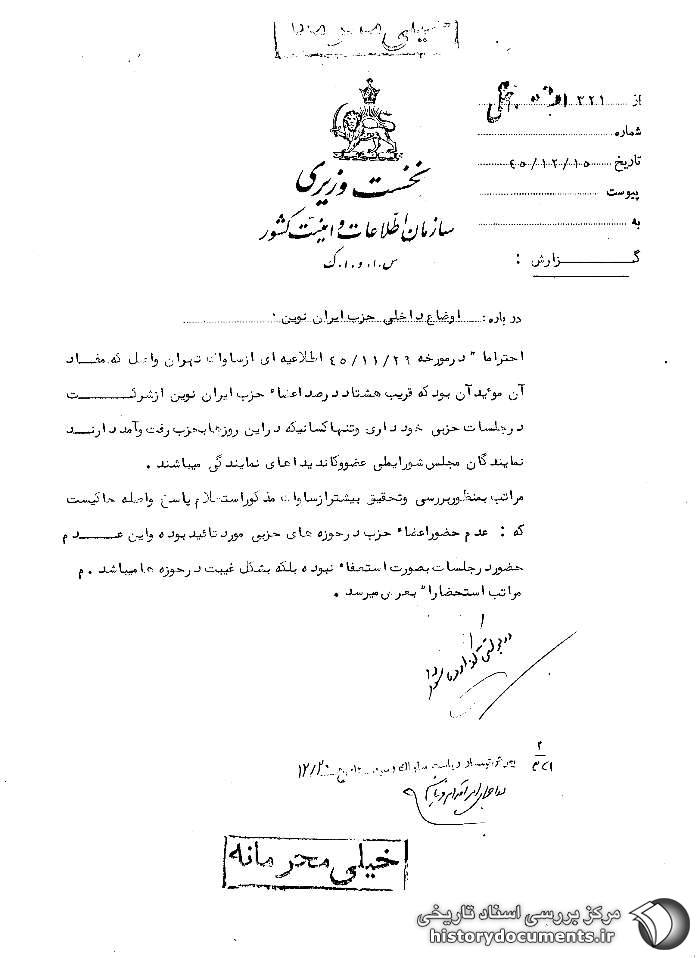 خیلی محرمانه
از ۳۲۱
شماره
تاریخ ۴۵/۱۲/۱۵
پیوست
به
گزارش :
نخست وزیری
سازمان اطلاعات و امنیت کشور
س.ا.و.ا.ک
درباره: اوضاع داخلی حزب ایران نوین .
احتراما" درمورخه ۴۵/۱۱/۲۹ اطلاعیه ای ازساواک تهران واصل که مفاد
آن موئیدآن بود که قریب هشتاد درصد اعضاء حزب ایران نوین ازشرکت
درجلسات حزبی خود داری وتنهاکسانیکه دراین روزهابحزب رفت وآمد دارند
نمایندگان مجلس شورایملی عضووکاندیداهای نمایندگی میباشند .
مراتب بمنظوربررسی وتحقیق بیشترازساواک مذکوراستعلام پاسخ واصله حاکیست
که : عدم حضوراعضاء حزب درحوزه های حزبی مورد تائید بوده واین عدم
حضوردرجلسات بصورت استعفاء نبوده بلکه بشکل غیبت درحوزه ها میباشد . م
مراتب استحضارا" بعرض میرسد .
ریاست ساواک
۱۲/۲۰
خیلی محرمانه
مرکز بررسی اسناد تاریخی
historydocuments.ir